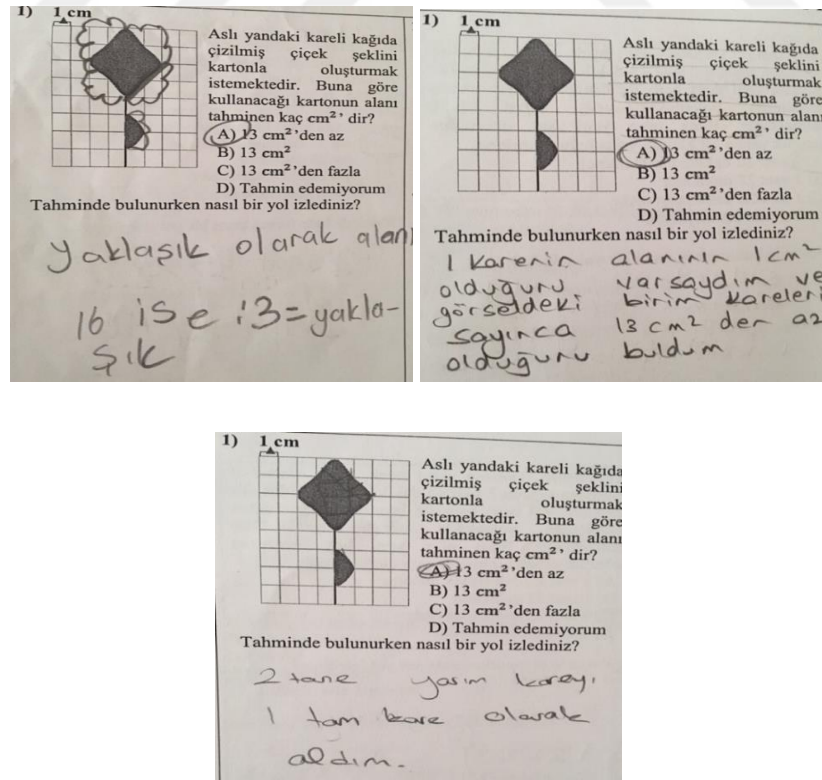 1) 1 cm
Aslı yandaki kareli kağıda
çizilmiş çiçek şeklini
kartonla oluşturmak
istemektedir. Buna göre
kullanacağı kartonun alanı
tahminen kaç cm²' dir?
A) 13 cm²'den az
B) 13 cm²
C) 13 cm²'den fazla
D) Tahmin edemiyorum
Tahminde bulunurken nasıl bir yol izlediniz?
Yaklaşık olarak alanı
16 ise :3=yakla-
şık
1) 1 cm
Aslı yandaki kareli kağıda
çizilmiş çiçek şeklini
kartonla oluşturmak
istemektedir. Buna göre
kullanacağı kartonun alanı
tahminen kaç cm²' dir?
A) 13 cm²'den az
B) 13 cm²
C) 13 cm²'den fazla
D) Tahmin edemiyorum
Tahminde bulunurken nasıl bir yol izlediniz?
1 karenin alanının 1cm²
olduğunu varsaydım ve
görseldeki birim kareleri
sayınca 13 cm² den az
olduğunu buldum
1) 1 cm
Aslı yandaki kareli kağıda
çizilmiş çiçek şeklini
kartonla oluşturmak
istemektedir. Buna göre
kullanacağı kartonun alanı
tahminen kaç cm²' dir?
A) 13 cm²'den az
B) 13 cm²
C) 13 cm²'den fazla
D) Tahmin edemiyorum
Tahminde bulunurken nasıl bir yol izlediniz?
2 tane yarım kareyi
1 tam kare olarak
aldım.